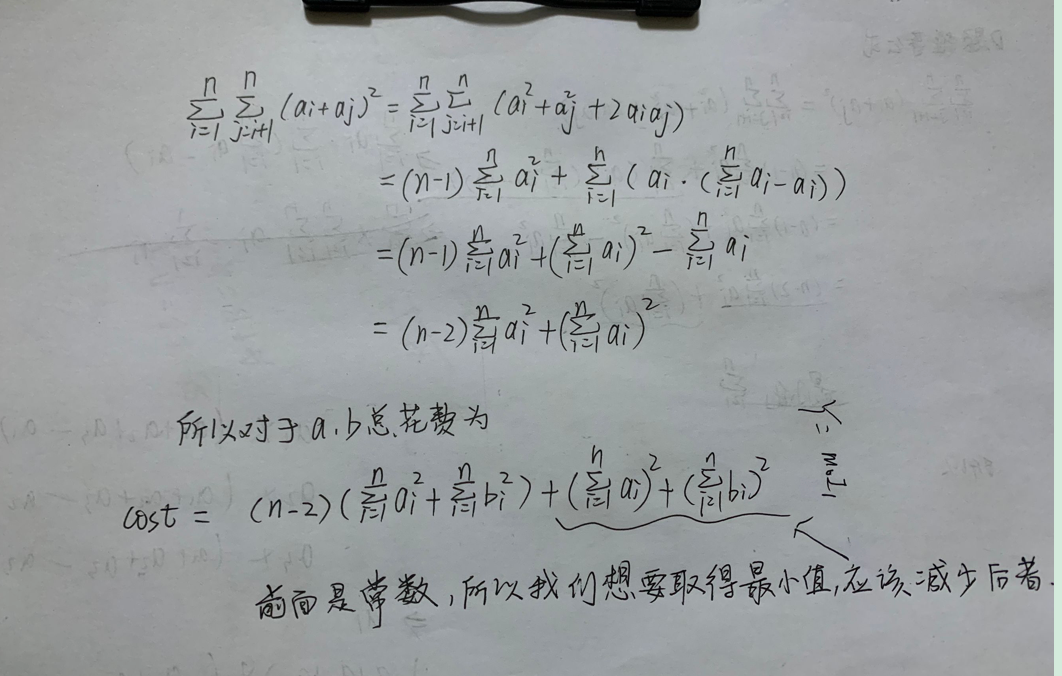 ∑_{i=1}^{n} ∑_{j=i+1}^{n} (ai+aj)² = ∑_{i=1}^{n} ∑_{j=i+1}^{n} (ai²+aj²+2aiaj)
=(n-1) ∑_{i=1}^{n} ai² + ∑_{i=1}^{n} (ai·(∑_{i=1}^{n} ai-ai))
=(n-1) ∑_{i=1}^{n} ai² + (∑_{i=1}^{n} ai)² - ∑_{i=1}^{n} ai
=(n-2) ∑_{i=1}^{n} ai² + (∑_{i=1}^{n} ai)²
所以对于a.b总花费为
cost = (n-2)(∑_{i=1}^{n} ai² + ∑_{i=1}^{n} bi²) + (∑_{i=1}^{n} ai)² + (∑_{i=1}^{n} bi)²
前面是常数,所以我们想要取得最小值,应该减少后者.